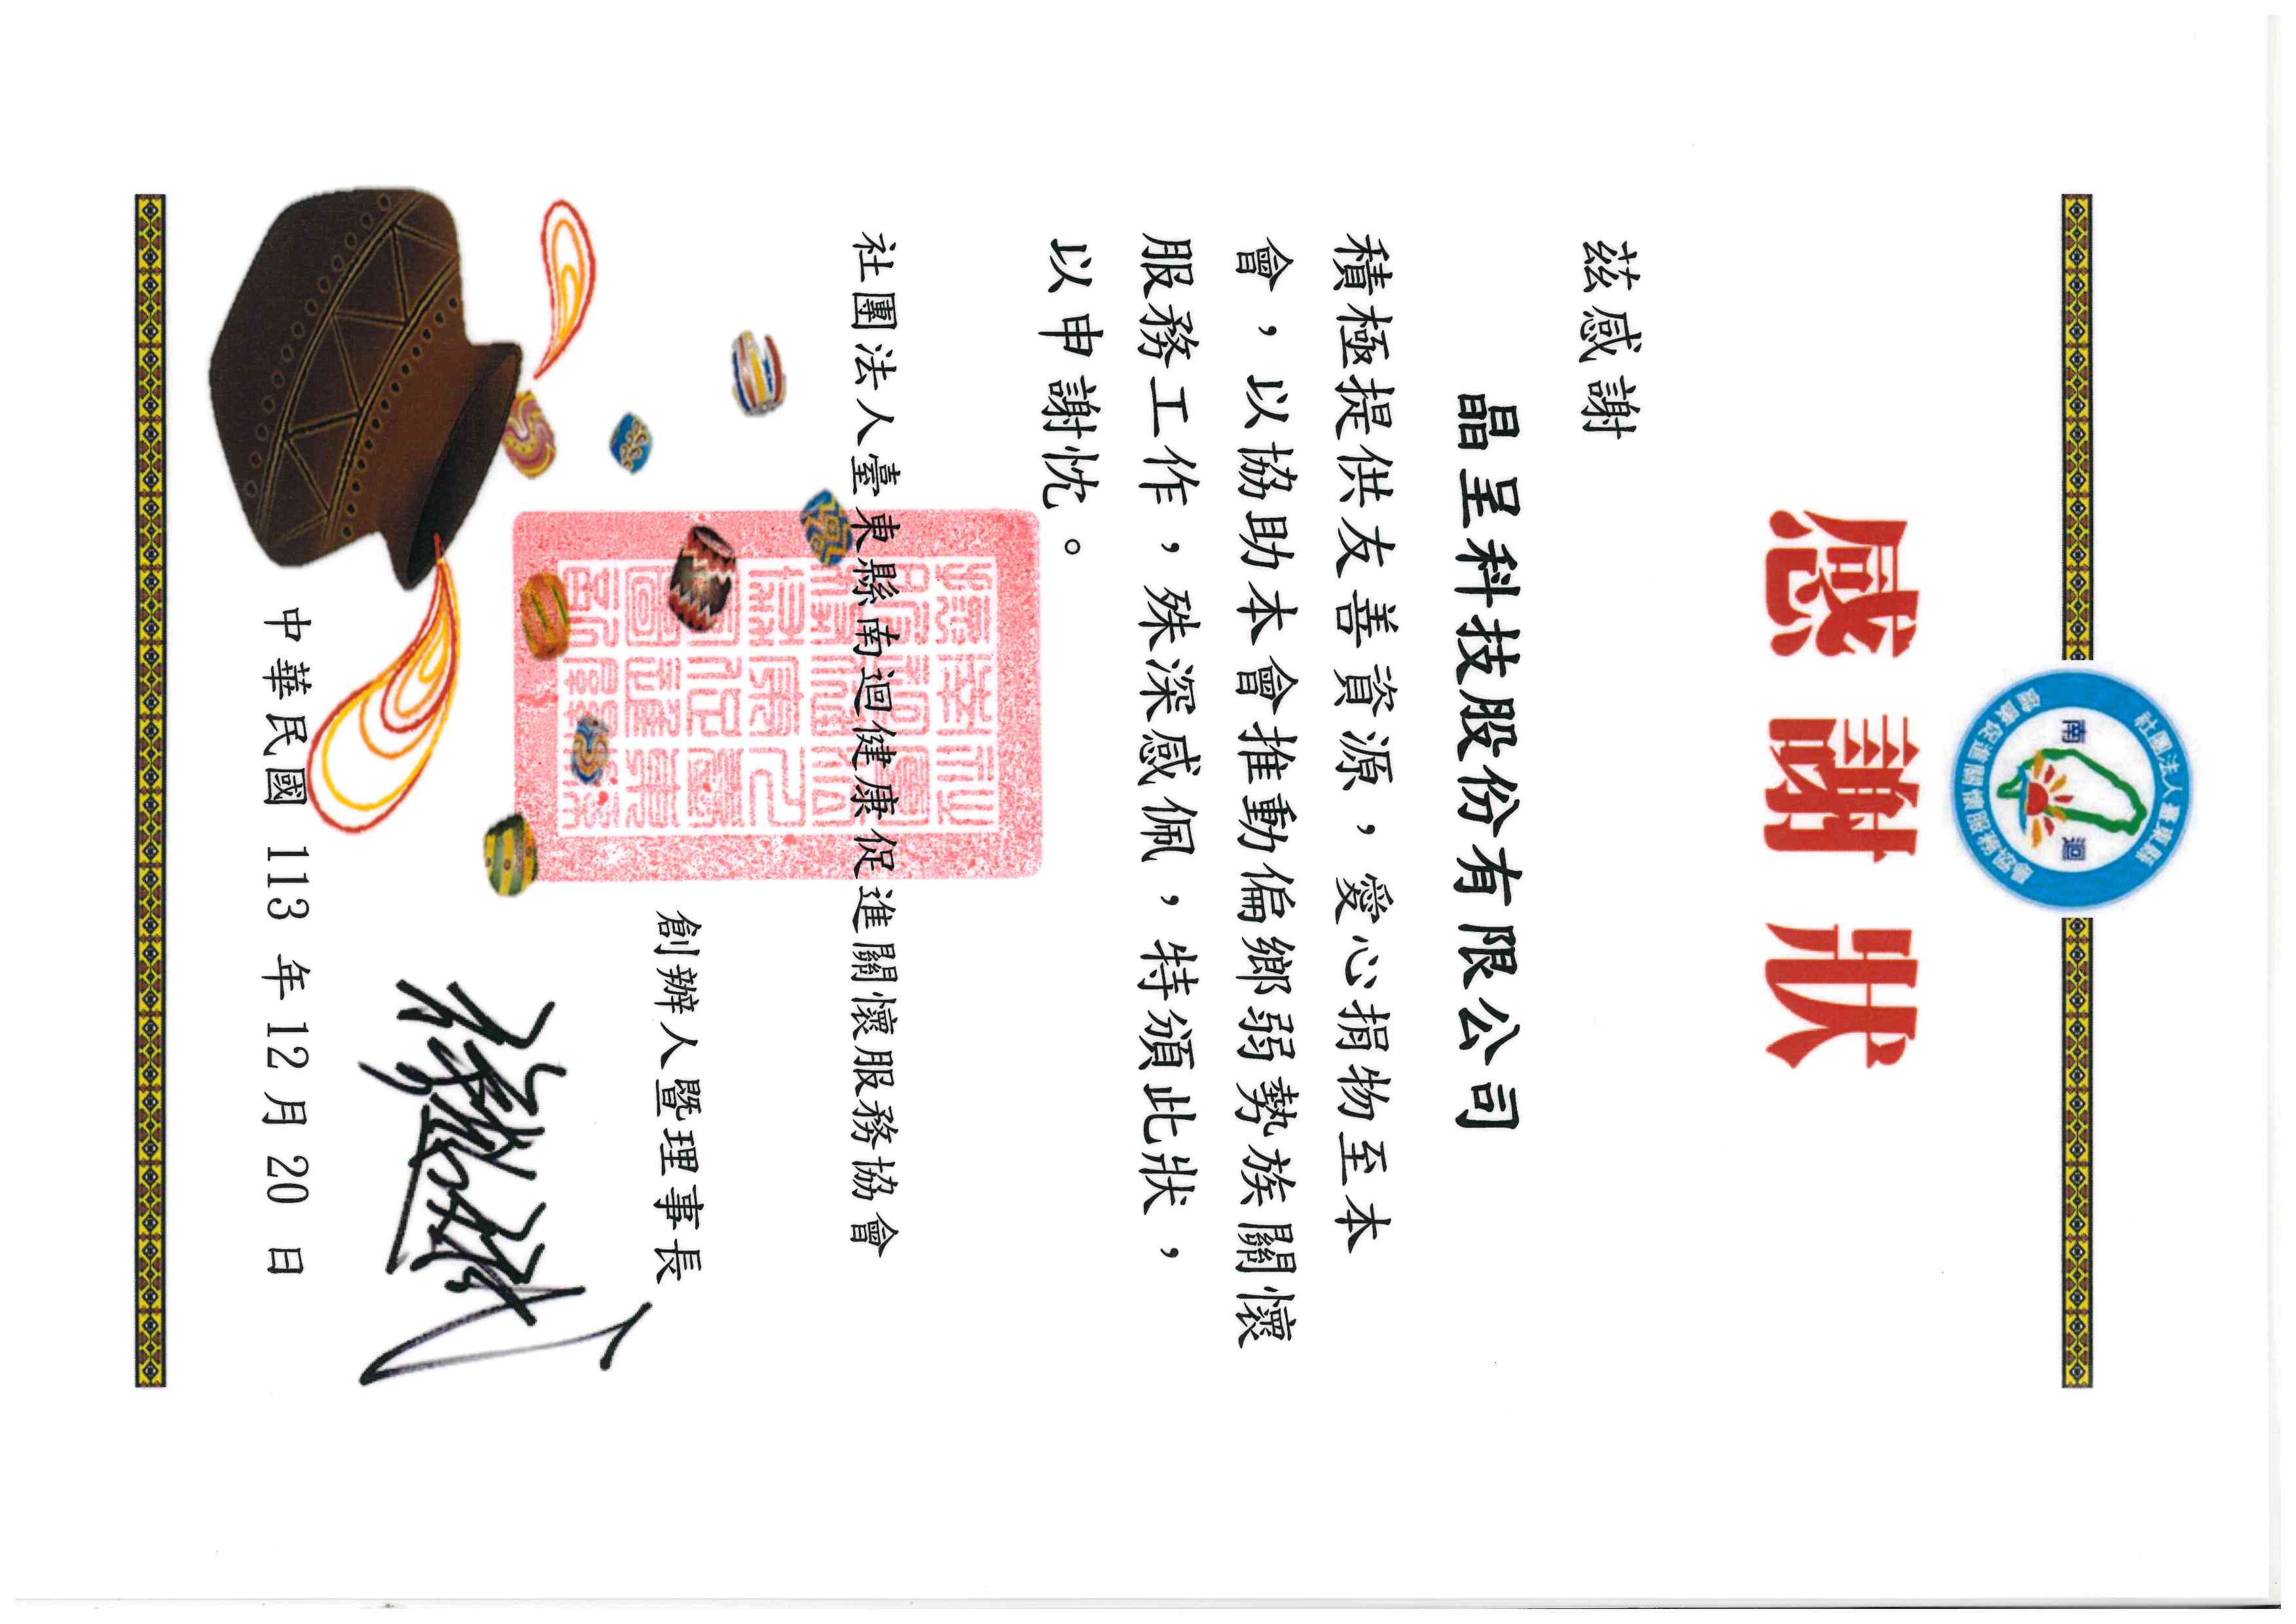 社團法人臺東縣
南迴
健康促進關懷服務協會
感謝狀
茲感謝
晶呈科技股份有限公司
積極提供友善資源，愛心捐物至本
會，以協助本會推動偏鄉弱勢族關懷
服務工作，殊深感佩，特頒此狀，
以申謝忱。
社團法人臺東縣南迴健康促進關懷服務協會
創辦人暨理事長
中華民國 113 年 12 月 20 日